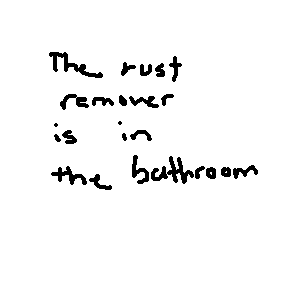 The rust
remover
is in
the bathroom